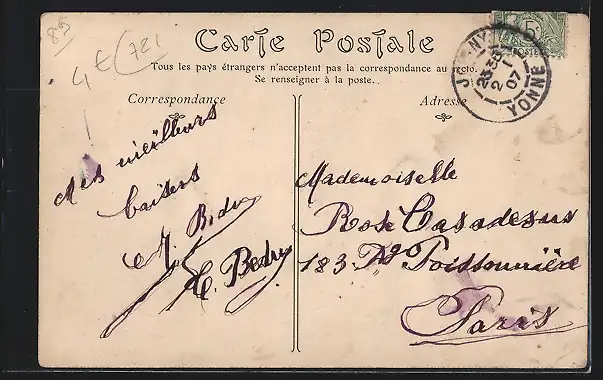 85
4€ (721
Carte Postale
Tous les pays étrangers n'acceptent pas la correspondance au recto.
Se renseigner à la poste.
Correspondance
Adresse
5
POSTES
23
2
07
YONNE
Mes meilleurs
baisers
M. Bedry
C. Bedry
Mademoiselle
Rose Casadesus
183. Fg Poissonnière
Paris